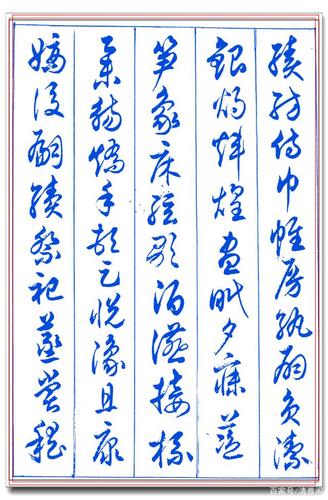 績紡侍巾帷房紈扇員潔
銀燭煒煌晝眠夕寐藍
笋象床弦歌酒讌接杯
舉觴矯手頓足悅豫且康
嫡後嗣續祭祀蒸嘗稽
百家号